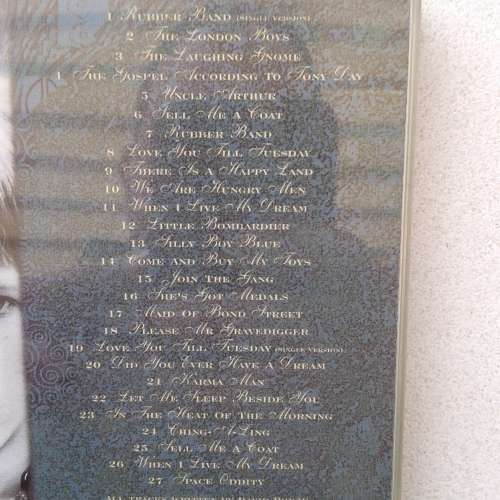 1 Rubber Band (Single Version)
2 The London Boys
3 The Laughing Gnome
4 The Gospel According To Tony Day
5 Uncle Arthur
6 Sell Me A Coat
7 Rubber Band
8 Love You Till Tuesday
9 There Is A Happy Land
10 We Are Hungry Men
11 When I Live My Dream
12 Little Bombardier
13 Silly Boy Blue
14 Come And Buy My Toys
15 Join The Gang
16 She's Got Medals
17 Maid Of Bond Street
18 Please Mr Gravedigger
19 Love You Till Tuesday (Single Version)
20 Did You Ever Have A Dream
21 Karma Man
22 Let Me Sleep Beside You
23 In The Heat Of The Morning
24 Ching-A-Ling
25 Sell Me A Coat
26 When I Live My Dream
27 Space Oddity
All Tracks Written By David Bowie